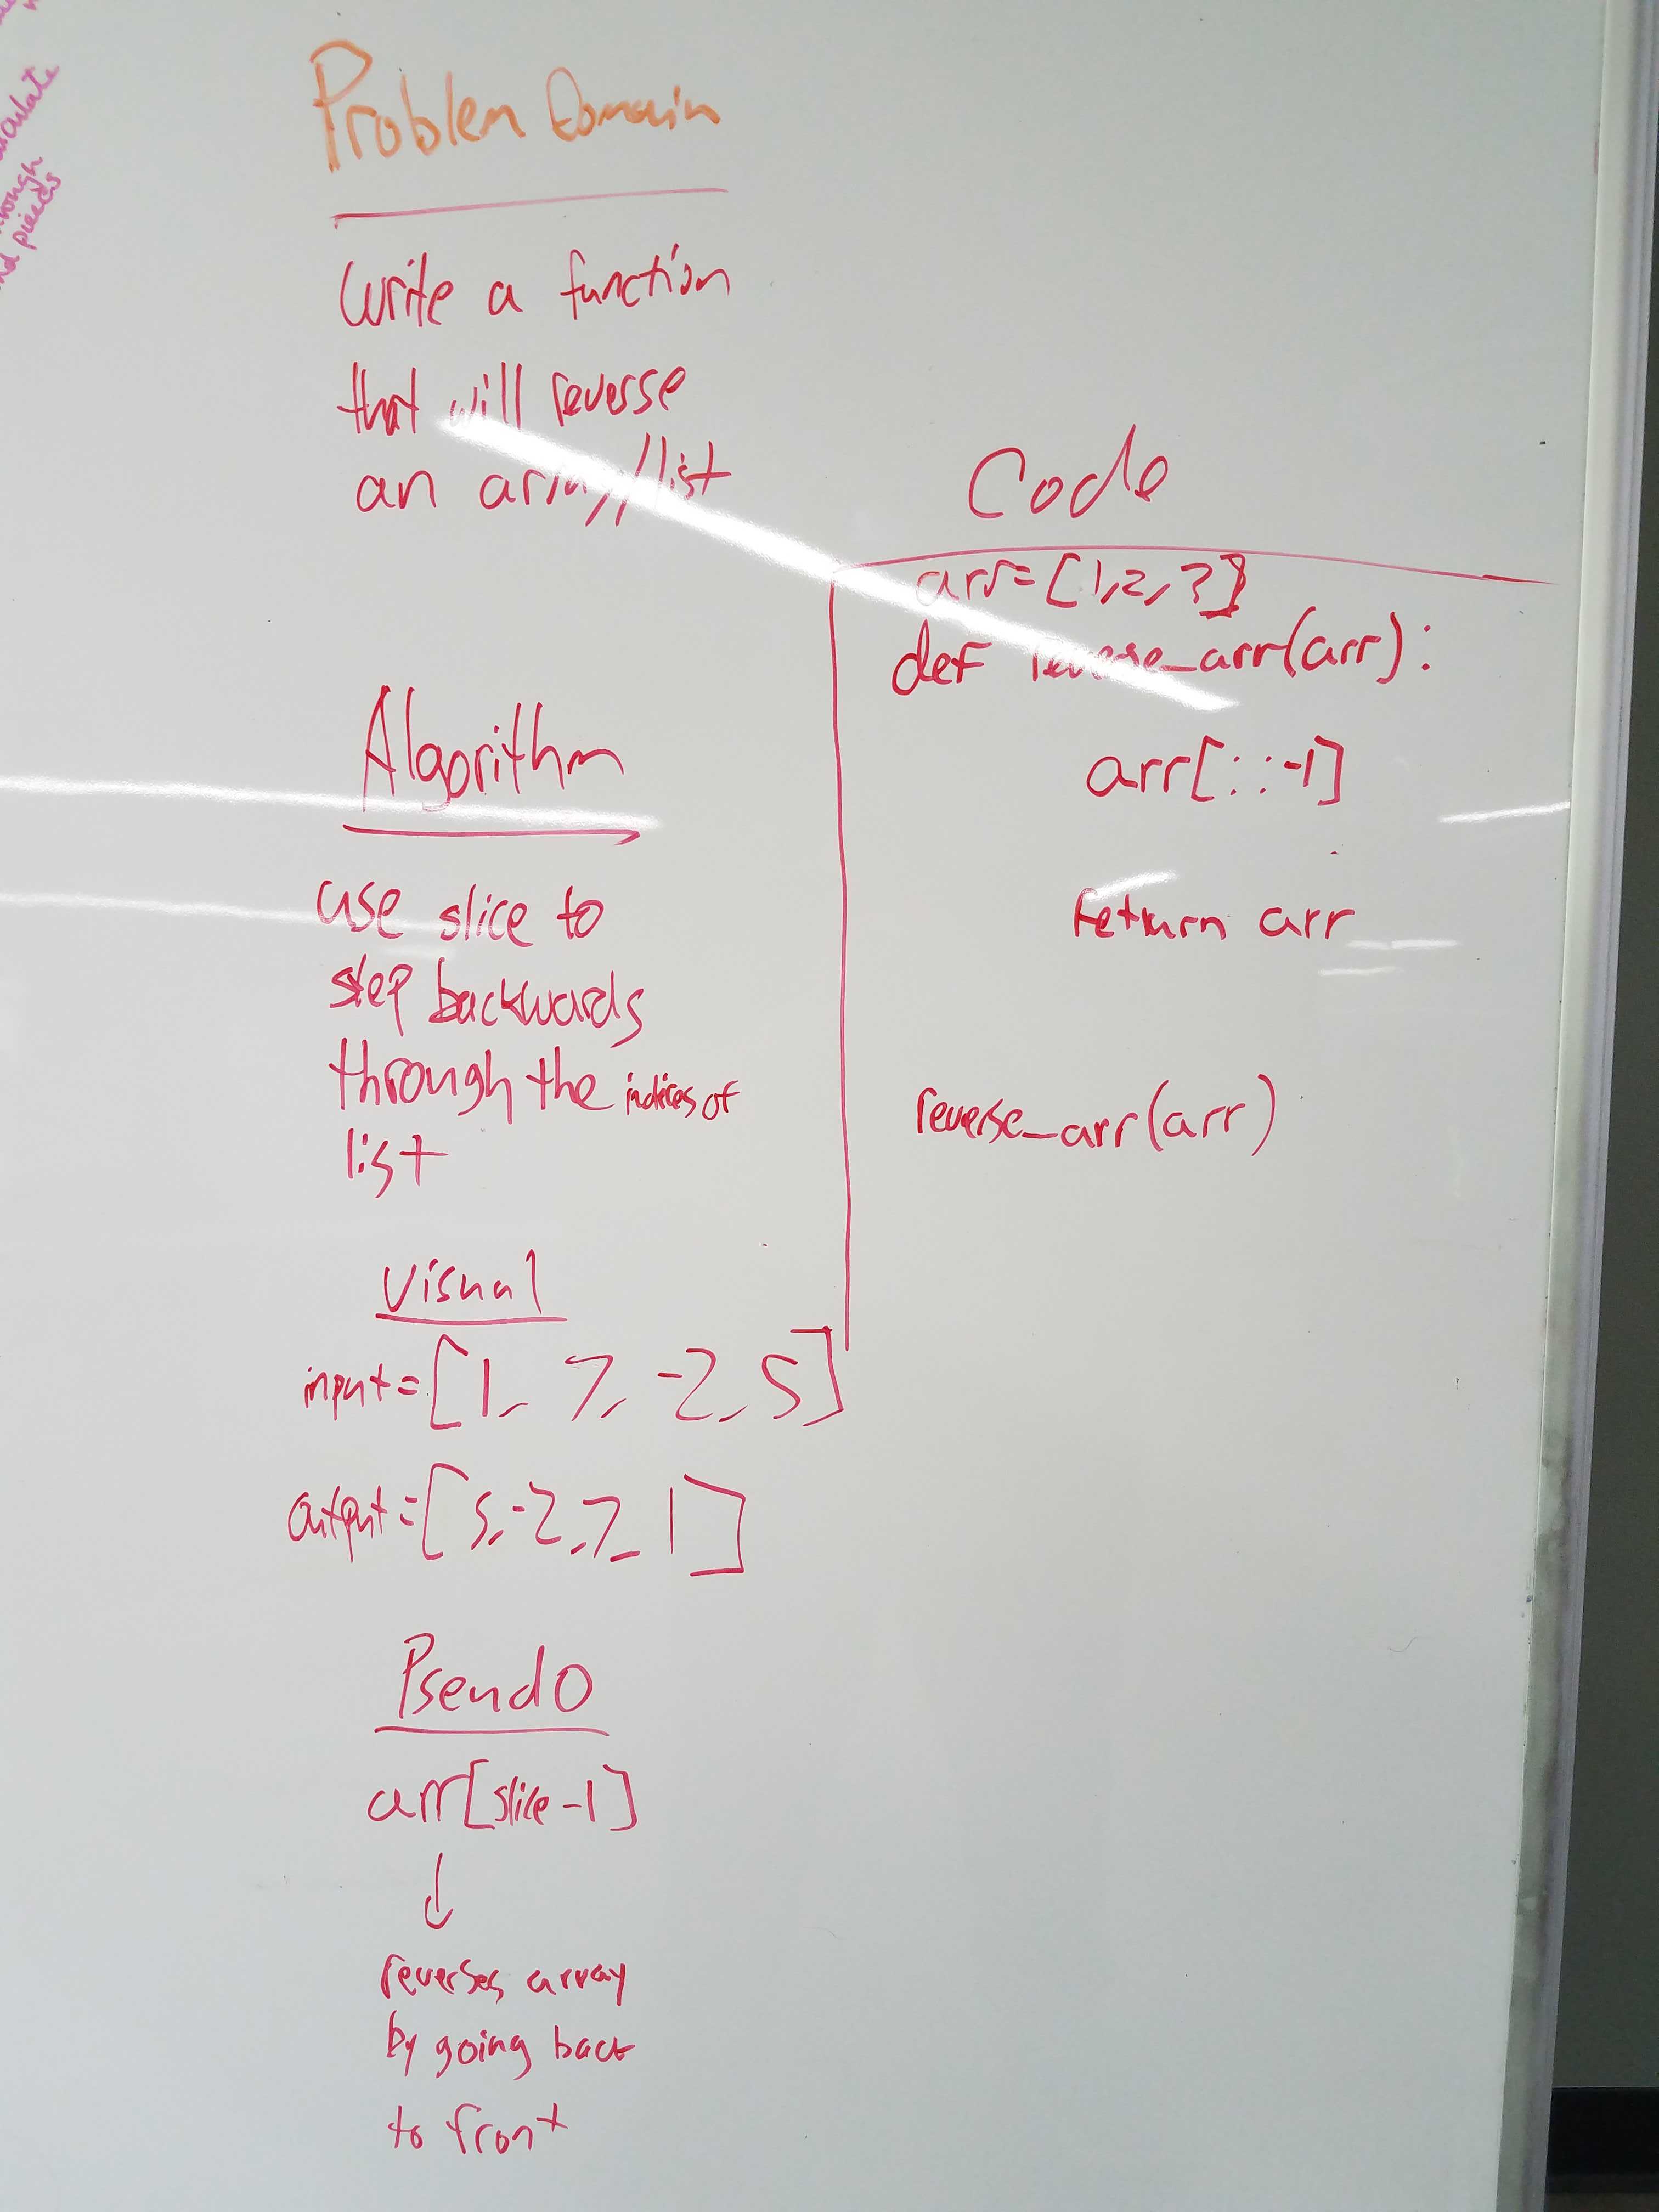 Problem Domain
Write a function
that will reverse
an array/list
Algorithm
use slice to
step backwards
through the indices of
list
Visual
input = [1, 7, -2, 5]
output = [5, -2, 7, 1]
Pseudo
arr[slice -1]
↓
reverses array
by going back
to front
Code
arr = [1,2,3]
def reverse_arr(arr):
arr[::-1]
return arr
reverse_arr(arr)
and pieces